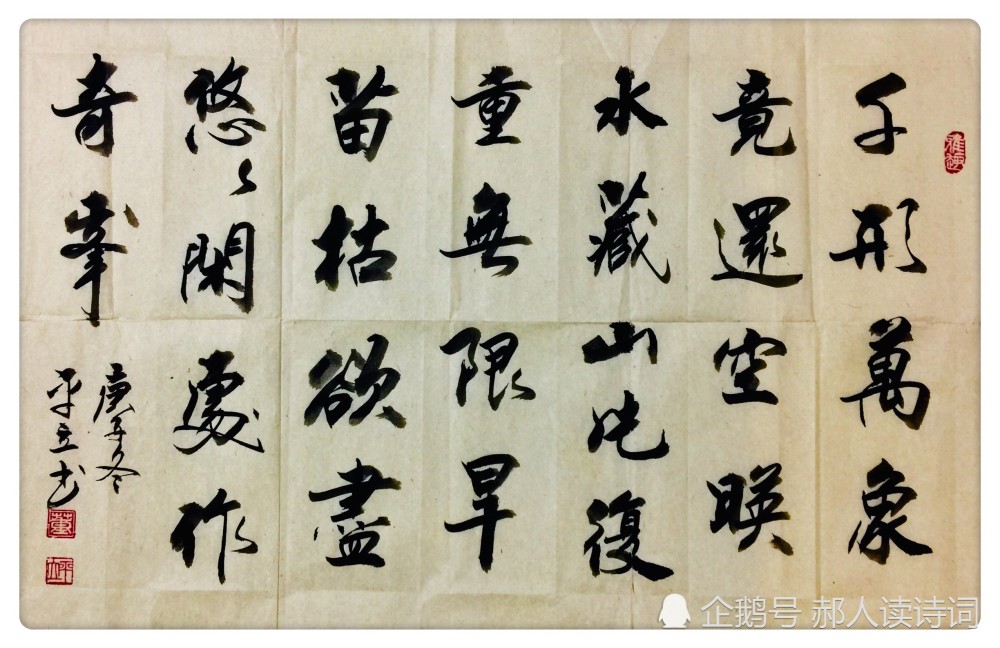 雅趣
千形萬象
竟還空暎
水藏山片復
重無限旱
苗枯欲盡
悠〻閑處作
奇峯
庚子冬
平立书
董
企鹅号 郝人读诗词